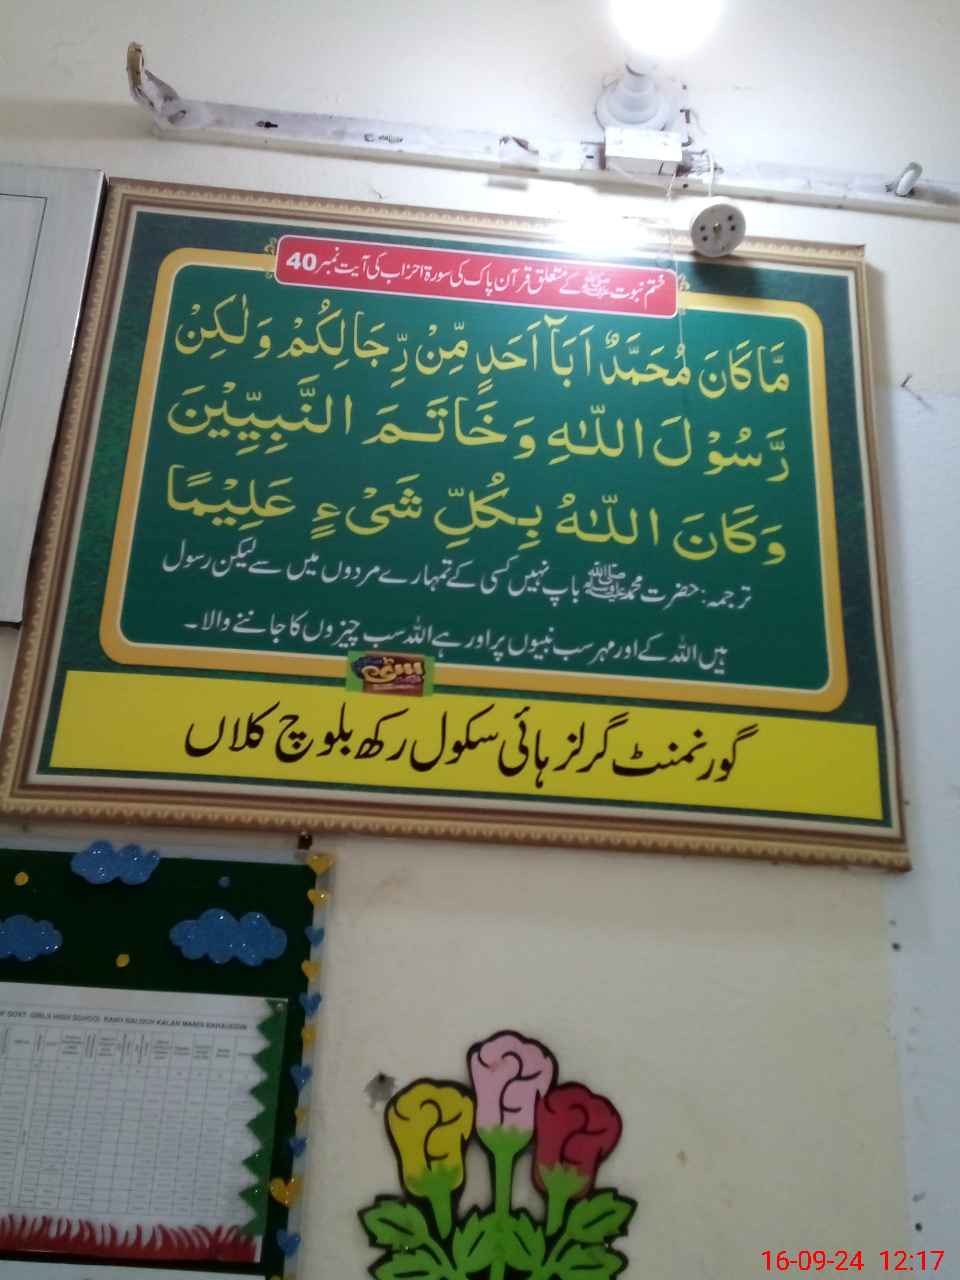 ختم نبوت ﷺ کے متعلق قرآن پاک کی سورۃ احزاب کی آیت نمبر 40
مَّا كَانَ مُحَمَّدٌ اَبَآ اَحَدٍ مِّنْ رِّجَالِكُمْ وَلٰكِنْ
رَّسُوْلَ اللّٰهِ وَخَاتَمَ النَّبِيّٖنَ
وَكَانَ اللّٰهُ بِكُلِّ شَىْءٍ عَلِيْمًا
ترجمہ: حضرت محمد ﷺ باپ نہیں کسی کے تمہارے مردوں میں سے لیکن رسول
ہیں اللہ کے اور مہر سب نبیوں پر اور ہے اللہ سب چیزوں کا جاننے والا۔
گورنمنٹ گرلز ہائی سکول رکھ بلوچ کلاں
GOVT. GIRLS HIGH SCHOOL RAKH BALOCH KALAN MANDI BAHAUDDIN
16-09-24 12:17